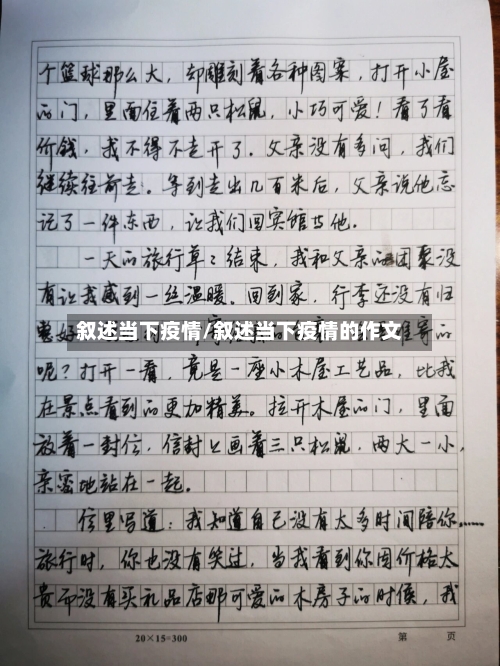 个篮球那么大，却雕刻着各种图案，打开小屋
的门，里面住着两只松鼠，小巧可爱！看了看
价钱，我不得不走开了。父亲没有多问，我们
继续往前走。等到走出几百米后，父亲说他忘
记了一件东西，让我们回宾馆等他。
一天的旅行草草结束，我和父亲的团聚没
有让我感到一丝温暖。回到家，行李还没有归
叙述当下疫情/叙述当下疫情的作文
呢？打开一看，竟是一座小木屋工艺品，比我
在景点看到的更加精美。拉开木屋的门，里面
放着一封信，信封上画着三只松鼠，两大一小，
亲密地站在一起。
信里写道：我知道自己没有太多时间陪你……
旅行时，你也没有笑过，当我看到你因价格太
贵而没有买礼品店那可爱的木房子的时候，我
20×15=300 第 页